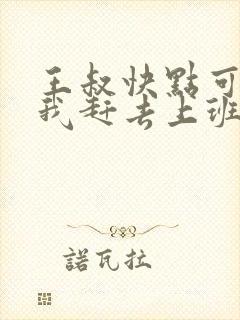 王叔快點可
我赶去上班
諾瓦拉